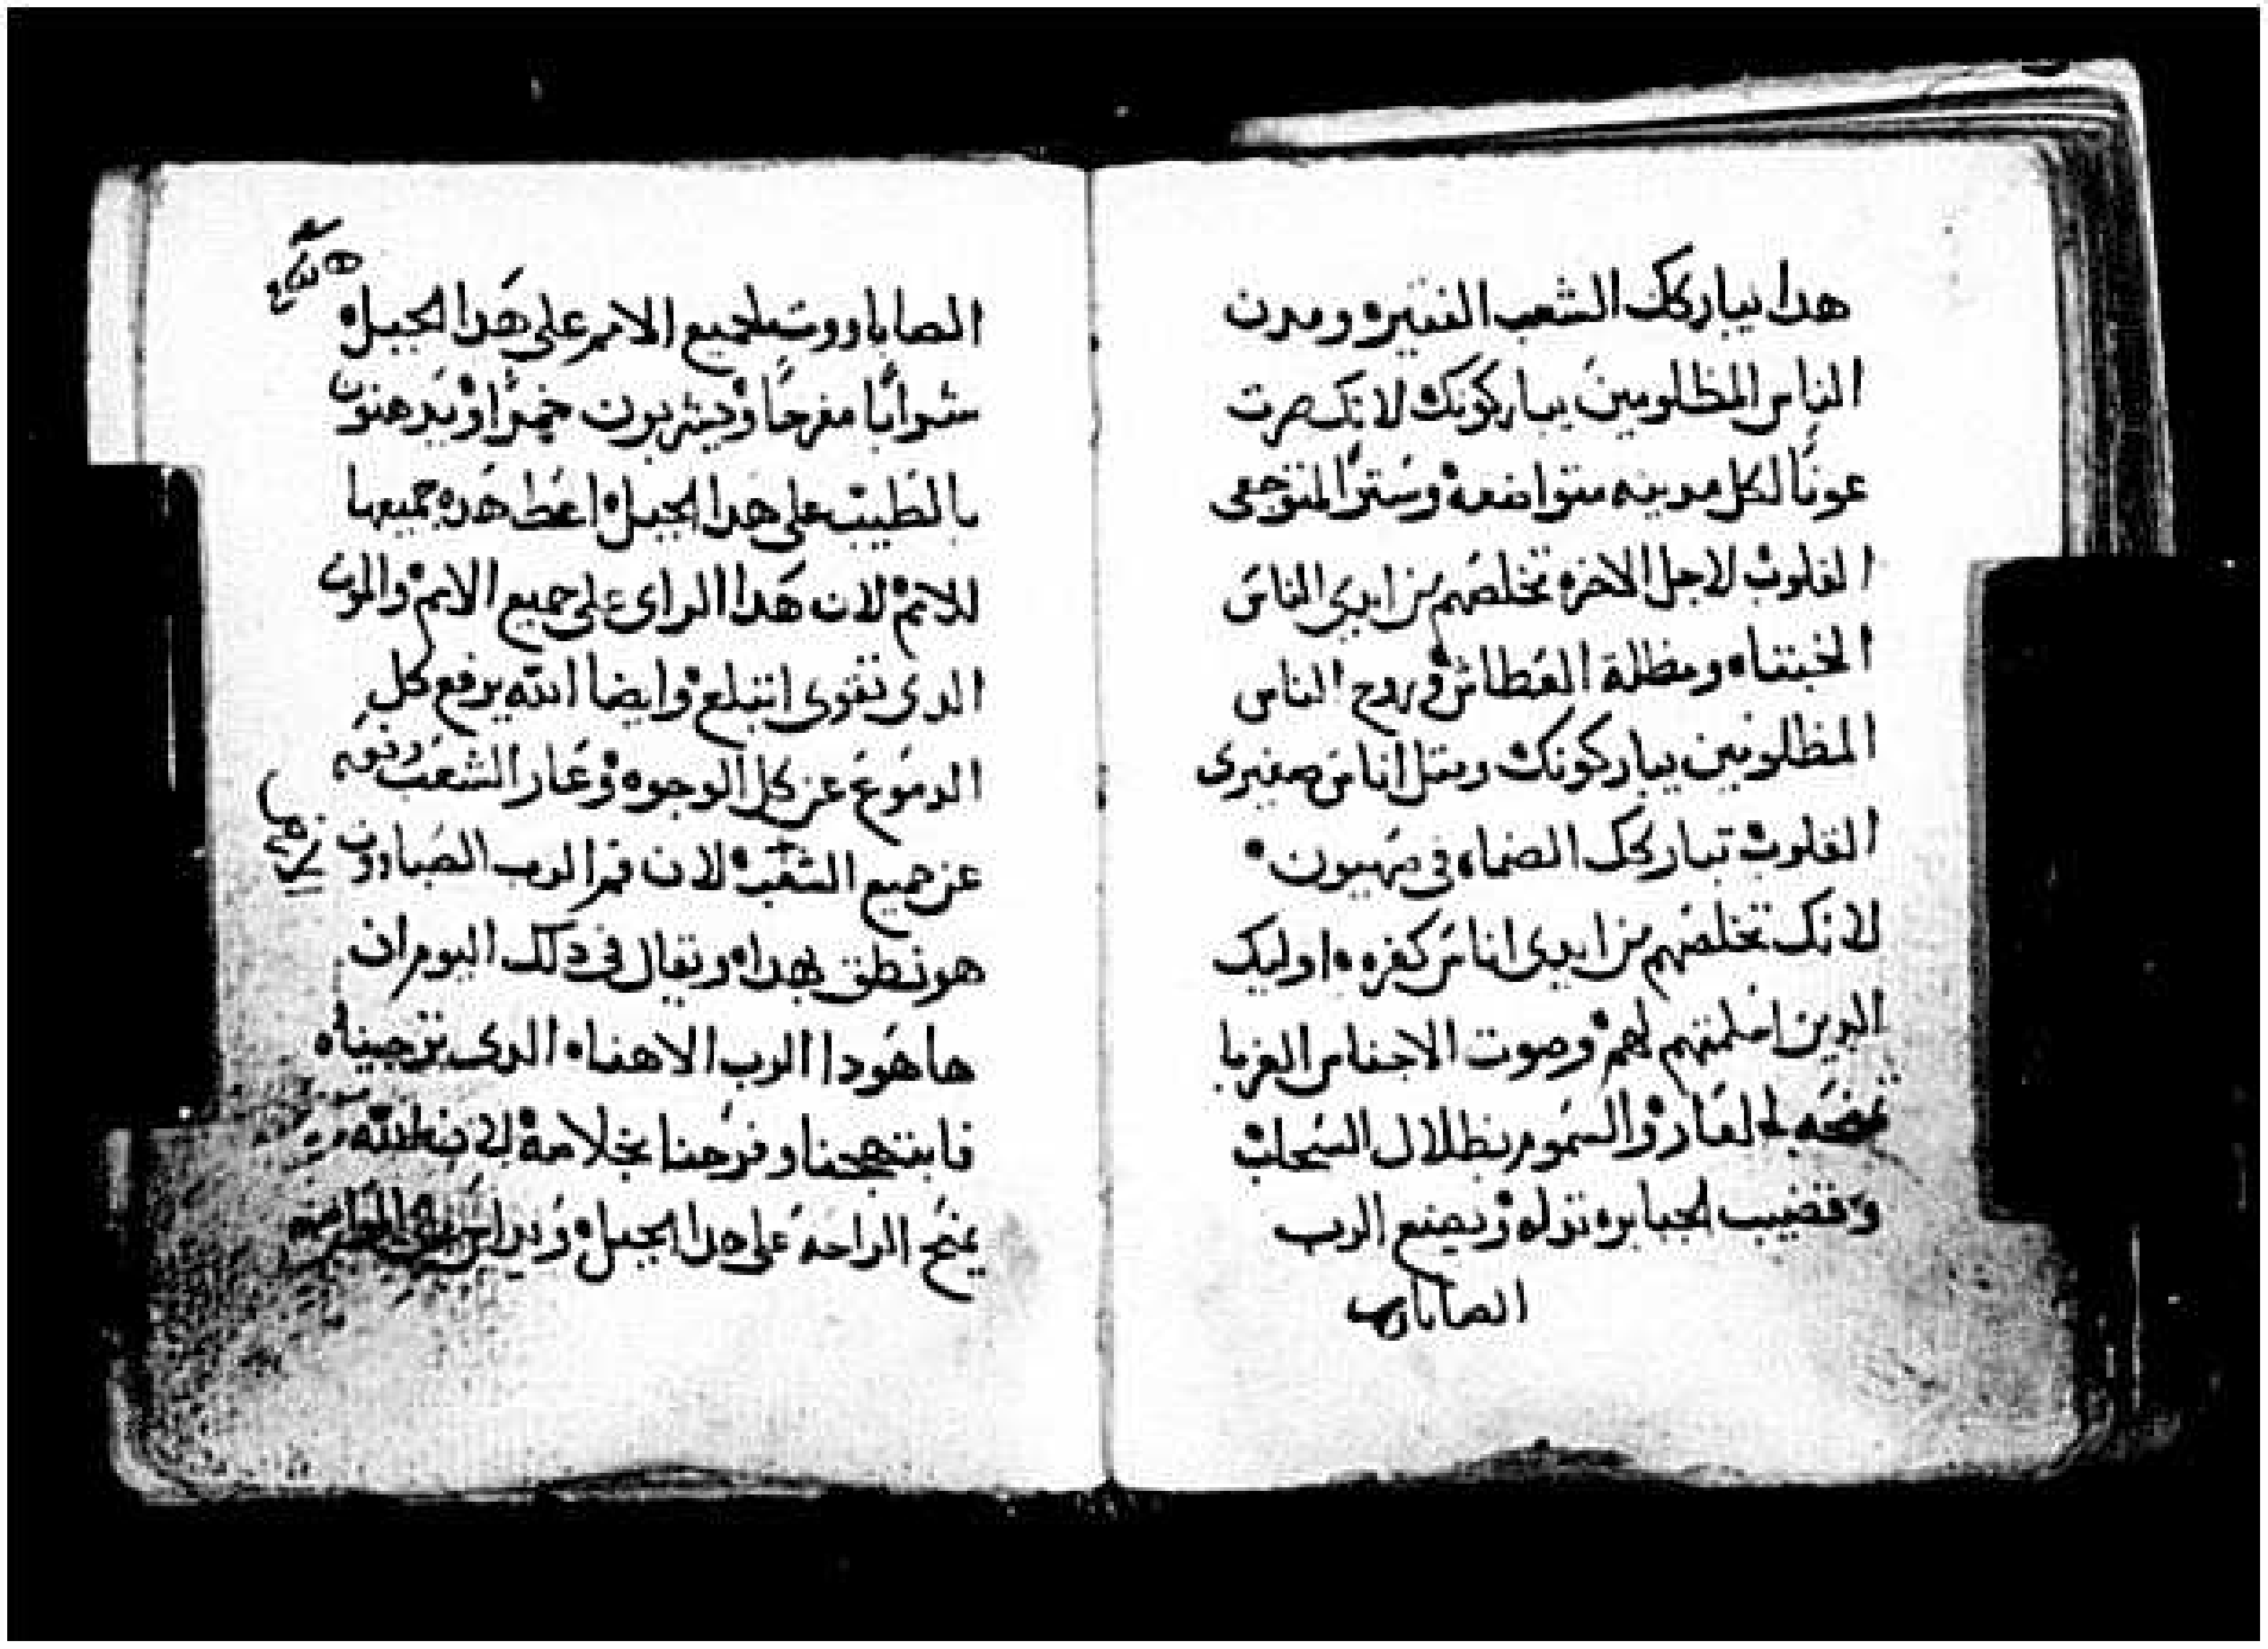 هدا يباركك الشعب الفقير ومدن
الناس المظلومين يباركونك لانك صرت
عونًا لكل مدينه متواضعة وسترًا لمتوجعى
القلوب لاجل الاخزه تخلصهم من ايدى الناس
الخبتاء ومظلة العطاش وروح الناس
المظلومين يباركونك ومتل اناس صغيرى
القلوب تباركك الضماء فى صهيون
لانك تخلصهم من ايدى اناس كفره اوليك
الدين اسلمتهم لهم وصوت الاجناس الغربا
العار والسموم بظلال السحاب
وقضيب الجبابره تزله ويصنع الرب
الصاباوت
الصاباووت لجميع الامم على هدا الجبل
شرابًا مفرحًا ويشربون خمرًا ويدهنون
بالطيب على هدا الجبل اعط هده جميعها
للامم لان هدا الراى على جميع الامم والموت
الدى تقوى ابتلع وايضا الله يرفع كل
الدموع عن كل الوجوه وعار الشعب
عن جميع الشعب لان فم الرب الصباووت
هو نطق بهدا ويقال فى دلك اليوم ان
ها هودا الرب الاهنا الدى ترجيناه
فابتهجنا وفرحنا بخلاصه لان الله
يمنح الراحة على هدا الجبل